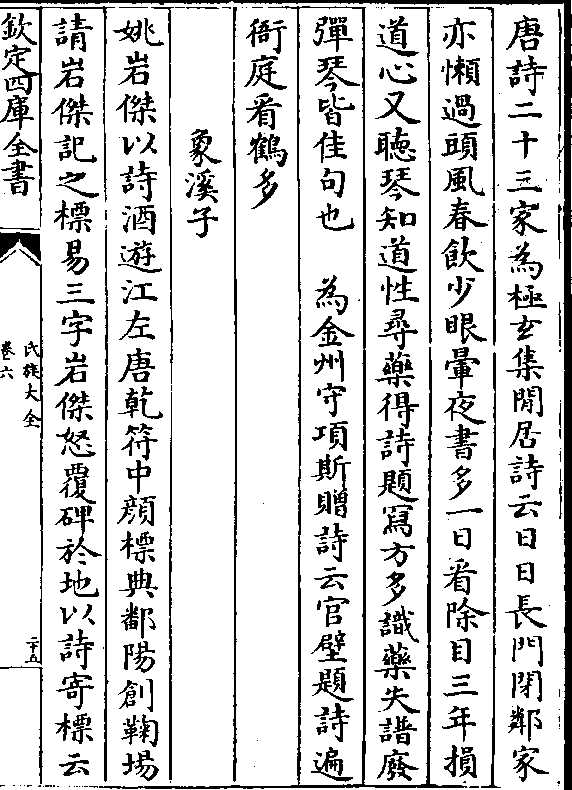 唐詩二十三家為極玄集閒居詩云日日長門閉鄰家
亦懶過頭風春飲少眼暈夜書多一日看除目三年損
道心又聽琴知道性尋藥得詩題寫方多識藥失譜廢
彈琴皆佳句也　為金州守項斯贈詩云官壁題詩遍
衙庭看鶴多
象溪子
姚岩傑以詩酒遊江左唐乾符中顔標典鄱陽創鞠場
請岩傑記之標易三字岩傑怒覆碑於地以詩寄標云
欽定四庫全書
氏族大全
卷六
二十五